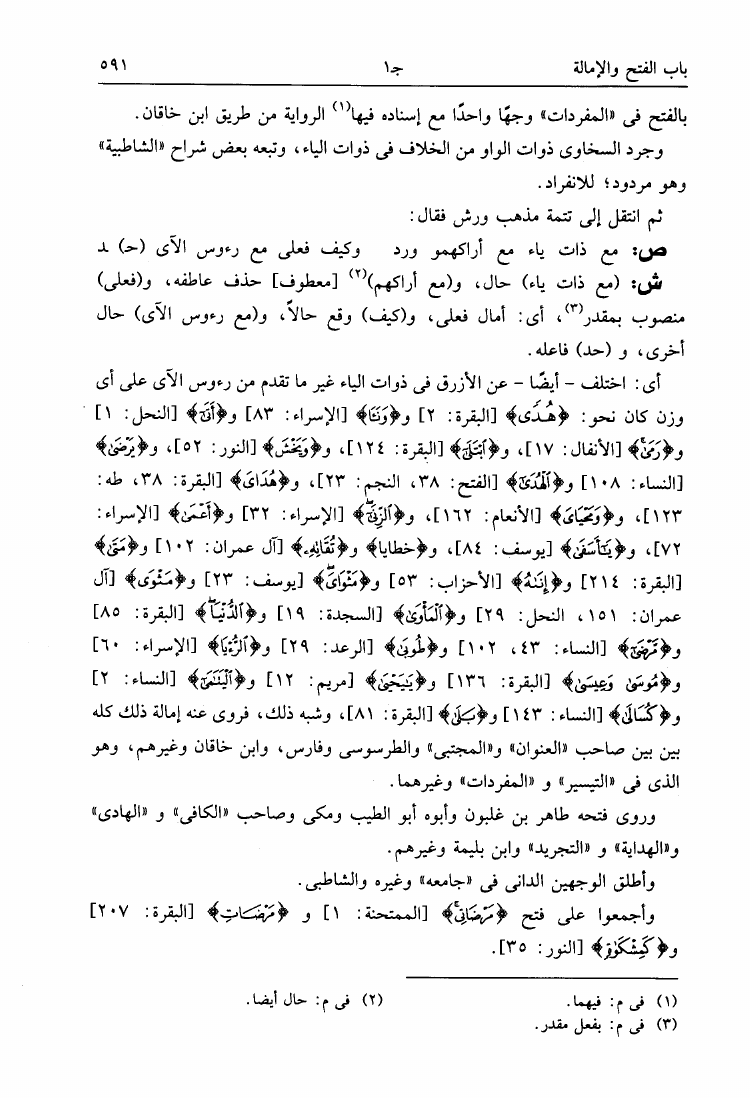 باب الفتح والإمالة جـ١ ٥٩١
بالفتح فى «المفردات» وجهًا واحدًا مع إسناده فيها(١) الرواية من طريق ابن خاقان.
وجرد السخاوى ذوات الواو من الخلاف فى ذوات الياء، وتبعه بعض شراح «الشاطبية»
وهو مردود؛ للانفراد.
ثم انتقل إلى تتمة مذهب ورش فقال:
ص: مع ذات ياء مع أراكهمو ورد وكيف فعلى مع رءوس الآى (حـ) ـد
ش: (مع ذات ياء) حال، و(مع أراكهم)(٢) [معطوف] حذف عاطفه، و(فعلى)
منصوب بمقدر(٣)، أى: أمال فعلى، و(كيف) وقع حالاً، و(مع رءوس الآى) حال
أخرى، و (حد) فاعله.
أى: اختلف - أيضًا - عن الأزرق فى ذوات الياء غير ما تقدم من رءوس الآى على أى
وزن كان نحو: ﴿هُدًى﴾ [البقرة: ٢] و﴿وَنَـَٔا﴾ [الإسراء: ٨٣] و﴿أَتَىٰٓ﴾ [النحل: ١]
و﴿رَمَىٰ﴾ [الأنفال: ١٧]، و﴿ٱبْتَلَىٰٓ﴾ [البقرة: ١٢٤]، و﴿وَيَخْشَ﴾ [النور: ٥٢]، و﴿يَرْضَىٰ﴾
[النساء: ١٠٨] و﴿ٱلْهُدَىٰٓ﴾ [الفتح: ٣٨، النجم: ٢٣]، و﴿هُدَاىَ﴾ [البقرة: ٣٨، طه:
١٢٣]، و﴿وَمَحْيَاىَ﴾ [الأنعام: ١٦٢]، و﴿ٱلزِّنَىٰٓ﴾ [الإسراء: ٣٢] و﴿أَعْمَىٰ﴾ [الإسراء:
٧٢]، و﴿يَـٰٓأَسَفَىٰ﴾ [يوسف: ٨٤]، و﴿خطايا﴾ و﴿تُقَاتِهِۦ﴾ [آل عمران: ١٠٢] و﴿مَتَىٰ﴾
[البقرة: ٢١٤] و﴿إِنَىٰهُ﴾ [الأحزاب: ٥٣] و﴿مَثْوَاىَ﴾ [يوسف: ٢٣] و﴿مَثْوَى﴾ [آل
عمران: ١٥١، النحل: ٢٩] و﴿ٱلْمَأْوَىٰ﴾ [السجدة: ١٩] و﴿ٱلدُّنْيَا﴾ [البقرة: ٨٥]
و﴿مَّرْضَىٰٓ﴾ [النساء: ٤٣، ١٠٢] و﴿طُوبَىٰ﴾ [الرعد: ٢٩] و﴿ٱلرُّءْيَا﴾ [الإسراء: ٦٠]
و﴿مُوسَىٰ وَعِيسَىٰ﴾ [البقرة: ١٣٦] و﴿يَـٰيَحْيَىٰ﴾ [مريم: ١٢] و﴿ٱلْيَتَـٰمَىٰٓ﴾ [النساء: ٢]
و﴿كُسَالَىٰ﴾ [النساء: ١٤٣] و﴿بَلَىٰ﴾ [البقرة: ٨١]، وشبه ذلك، فروى عنه إمالة ذلك كله
بين بين صاحب «العنوان» و«المجتبى» والطرسوسى وفارس، وابن خاقان وغيرهم، وهو
الذى فى «التيسير» و «المفردات» وغيرهما.
وروى فتحه طاهر بن غلبون وأبوه أبو الطيب ومكى وصاحب «الكافى» و «الهادى»
و«الهداية» و «التجريد» وابن بليمة وغيرهم.
وأطلق الوجهين الدانى فى «جامعه» وغيره والشاطبى.
وأجمعوا على فتح ﴿مَرْضَاتِى﴾ [الممتحنة: ١] و ﴿مَرْضَاتِ﴾ [البقرة: ٢٠٧]
و﴿كَمِشْكَوٰةٍ﴾ [النور: ٣٥].
(١) فى م: فيهما. (٢) فى م: حال أيضا.
(٣) فى م: بفعل مقدر.